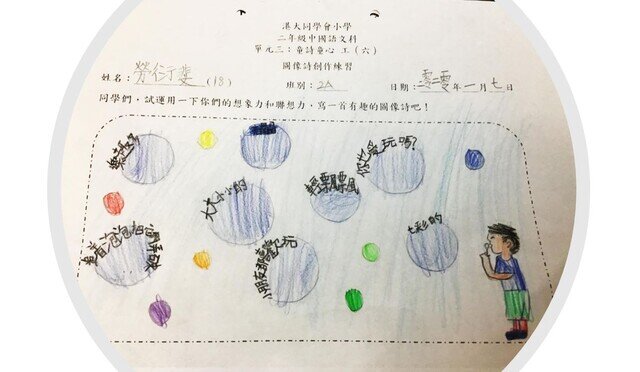 港大同學會小學
二年級中國語文科
單元三：童詩童心 工（六）
圖像詩創作練習
姓名：勞衍丁(18) 班別：2A 日期：零二零年一月七日
同學們，試運用一下你們的想象力和聯想力，寫一首有趣的圖像詩吧！
你也愛玩嗎？
大大小小的
輕飄飄
七彩的
看着泡泡
小朋友都喜歡玩